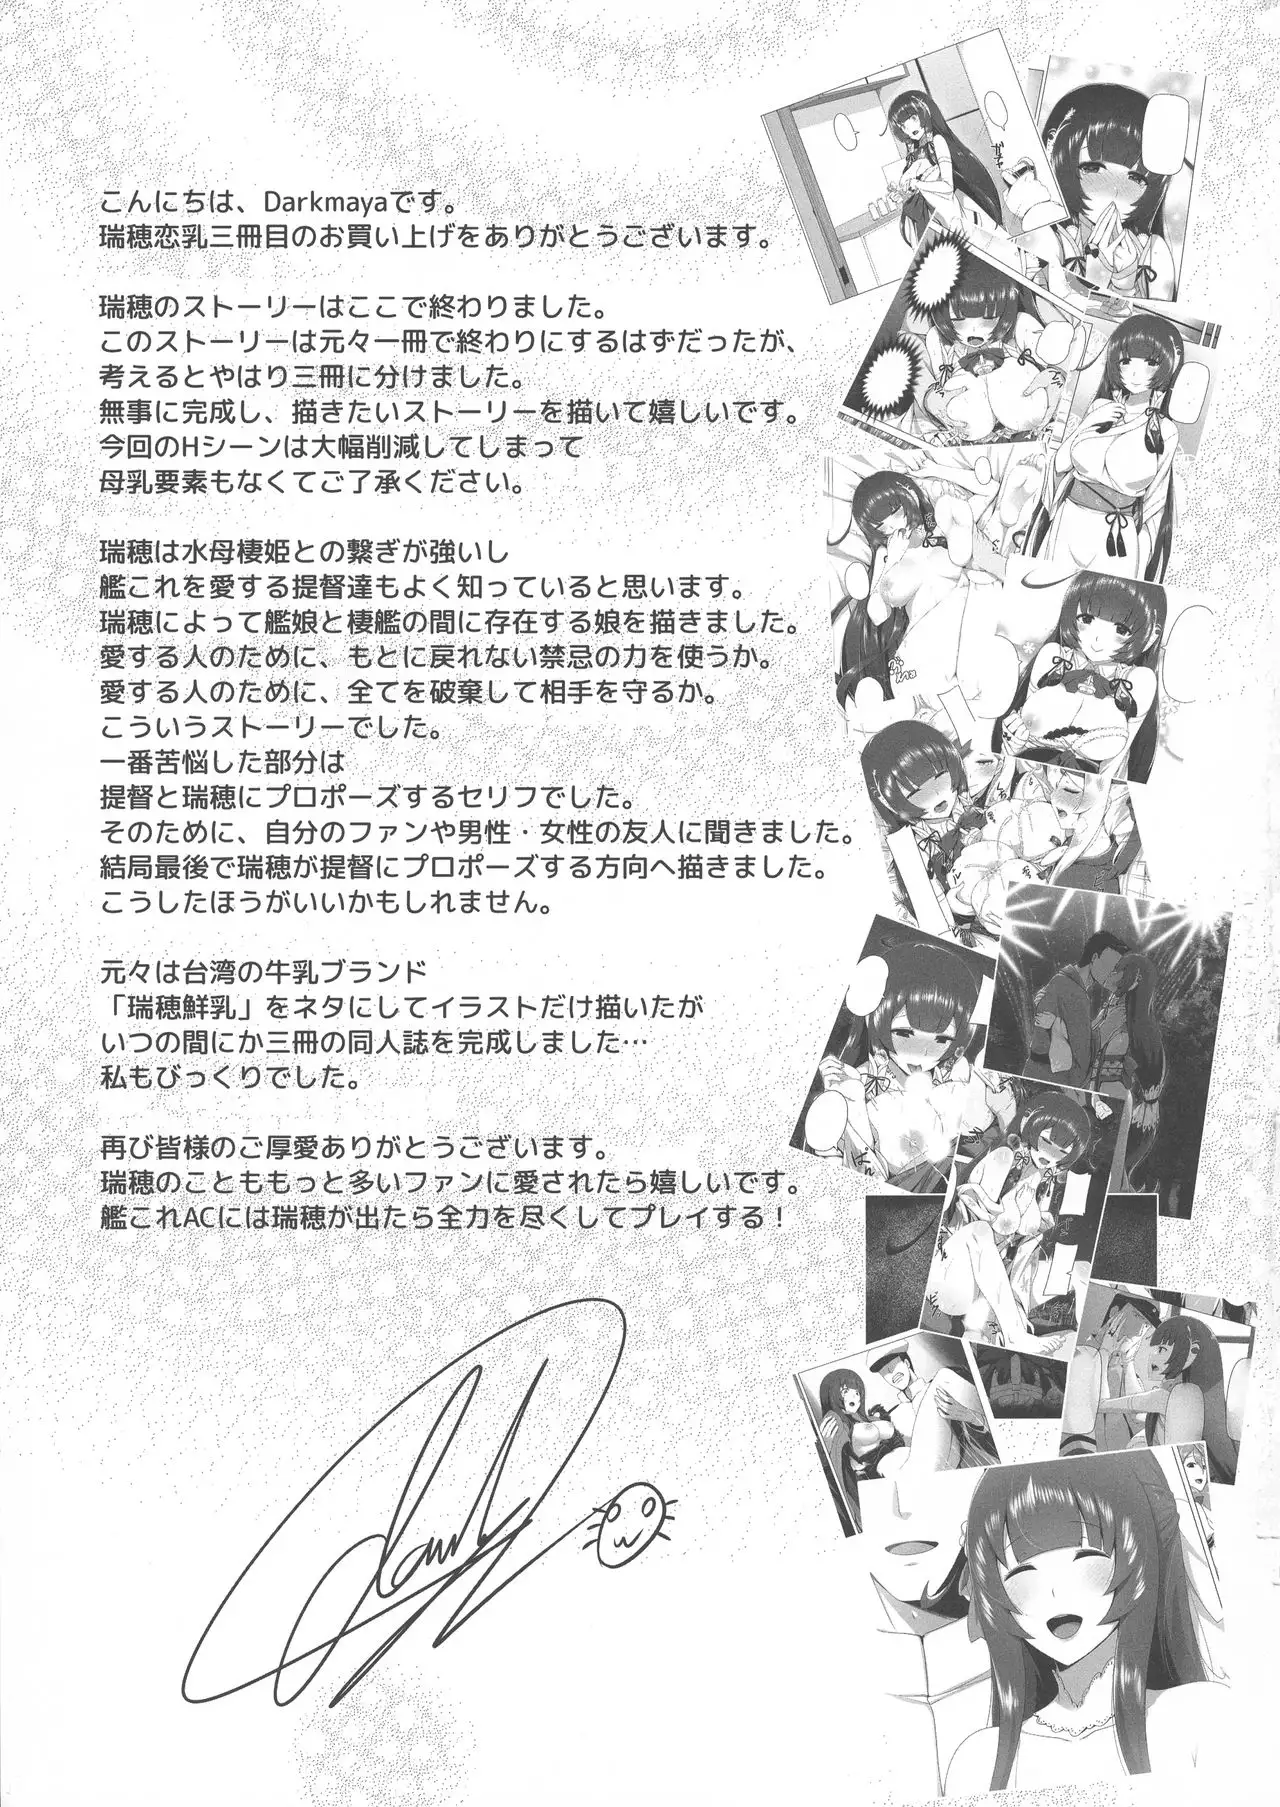 こんにちは、Darkmayaです。
瑞穂恋乳三冊目のお買い上げをありがとうございます。
瑞穂のストーリーはここで終わりました。
このストーリーは元々一冊で終わりにするはずだったが、
考えるとやはり三冊に分けました。
無事に完成し、描きたいストーリーを描いて嬉しいです。
今回のHシーンは大幅削減してしまって
母乳要素もなくてご了承ください。
瑞穂は水母棲姫との繋ぎが強いし
艦これを愛する提督達もよく知っていると思います。
瑞穂によって艦娘と棲艦の間に存在する娘を描きました。
愛する人のために、もとに戻れない禁忌の力を使うか。
愛する人のために、全てを破棄して相手を守るか。
こういうストーリーでした。
一番苦悩した部分は
提督と瑞穂にプロポーズするセリフでした。
そのために、自分のファンや男性・女性の友人に聞きました。
結局最後で瑞穂が提督にプロポーズする方向へ描きました。
こうしたほうがいいかもしれません。
元々は台湾の牛乳ブランド
「瑞穂鮮乳」をネタにしてイラストだけ描いたが
いつの間にか三冊の同人誌を完成しました…
私もびっくりでした。
再び皆様のご厚愛ありがとうございます。
瑞穂のことももっと多いファンに愛されたら嬉しいです。
艦これACには瑞穂が出たら全力を尽くしてプレイする！